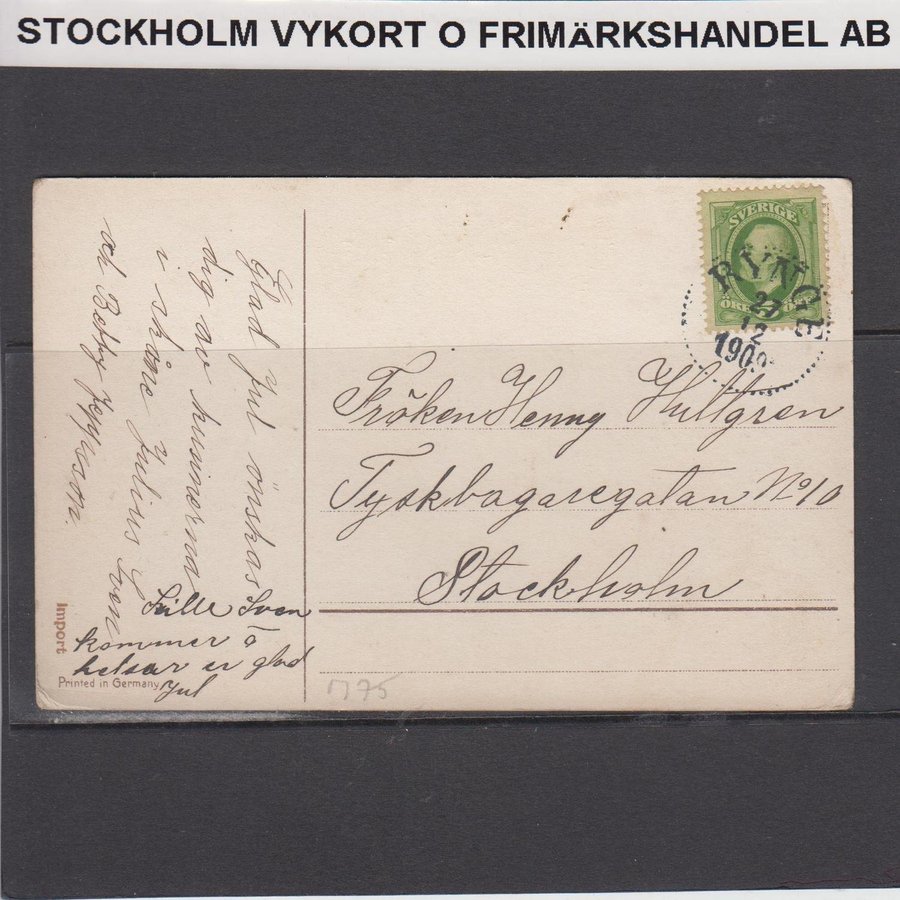 STOCKHOLM VYKORT O FRIMÄRKSHANDEL AB
SVERIGE
ÖRE
RYNGE
27
12
190
Glad Jul önskas
dig av kusinerna
i skåne Julius Sven
och Betty Jeppsson.
Lille Sven
kommer o
helsar er glad
Jul
Fröken Henny Hultgren
Tyskbagaregatan No 10
Stockholm
Import
Printed in Germany
75